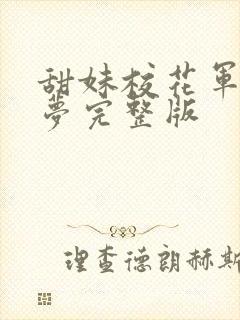 甜妹校花军
夢完整版
理查德朗赫斯